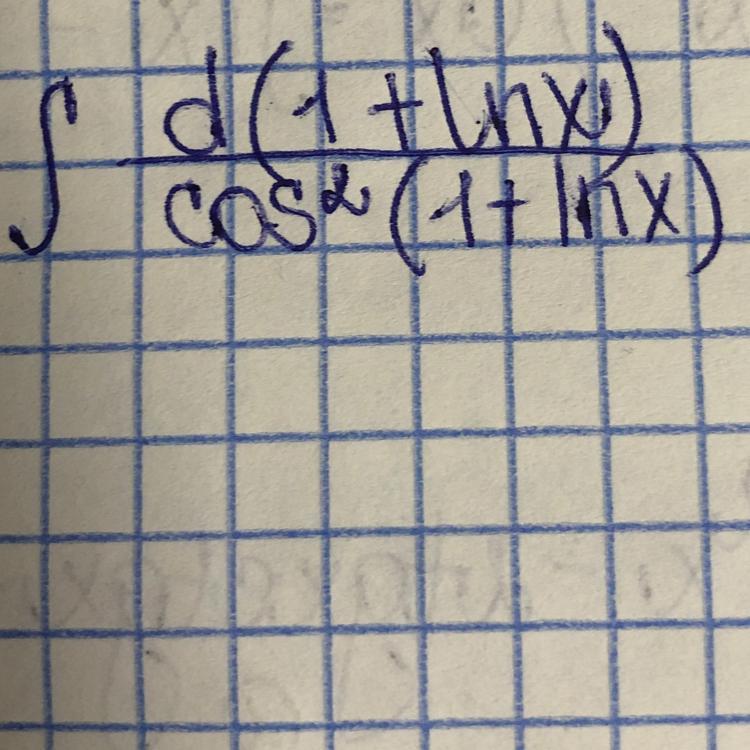 ∫ d(1 + lnx)
cos² (1 + lnx)